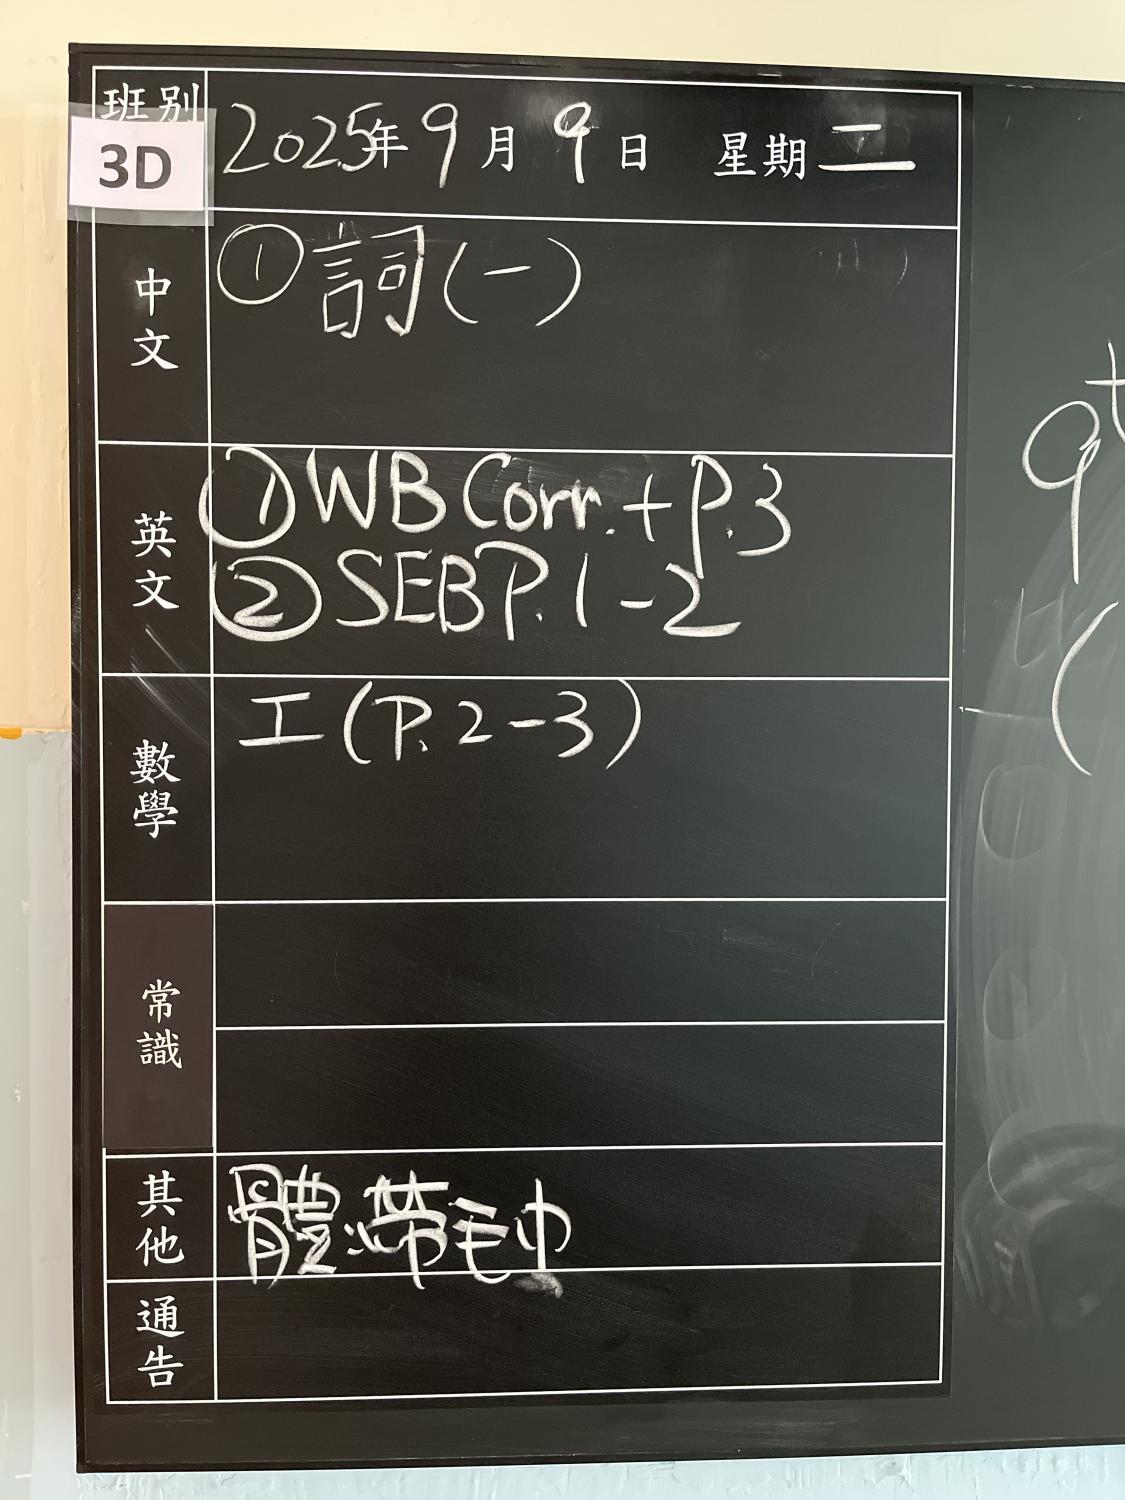 班別
3D
2025年9月9日 星期二
中文
①詞(一)
英文
①WB Corr. + P.3
②SEB P.1-2
數學
工(P.2-3)
常識
其他
體:帶毛巾
通告
9t
(